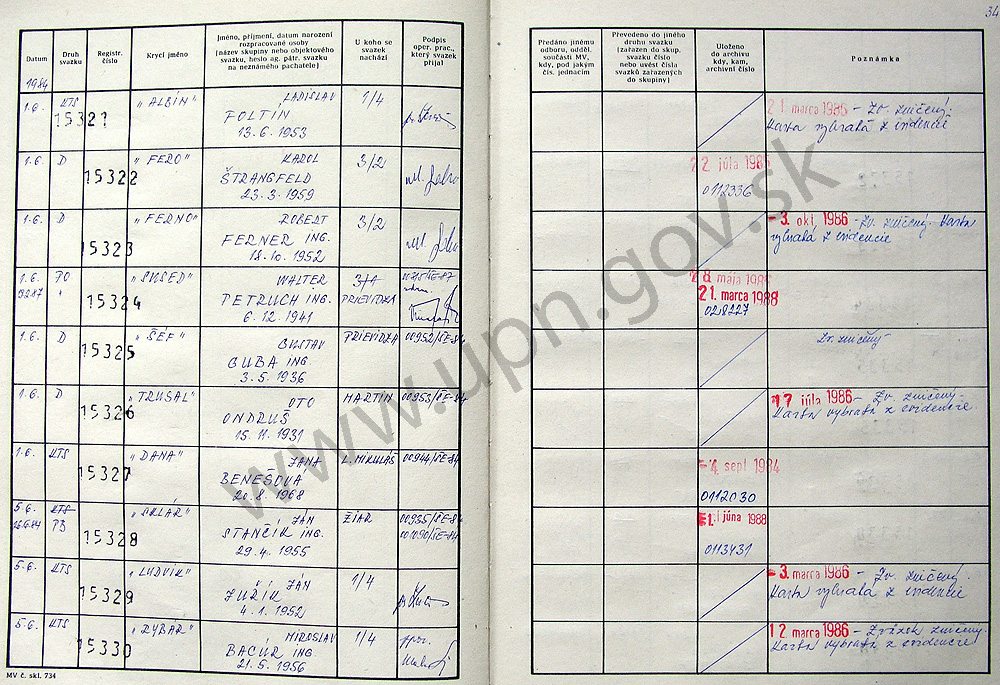 34
Datum
Druh
svazku
Registr.
číslo
Krycí jméno
Jméno, příjmení, datum narození
rozpracované osoby
(název skupiny nebo objektového
svazku, heslo ag. pátr. svazku
na neznámého pachatele)
U koho se
svazek
nachází
Podpis
oper. prac.,
který svazek
přijal
Předáno jinému
odboru, odděl.
součásti MV,
kdy, pod jakým
čís. jednacím
Převedeno do jiného
druhu svazku
(zařazen do skup.
svazku čís.
nebo uvést čísla
svazků zařazených
do skupiny)
Uloženo
do archivu
kdy, kam,
archivní číslo
Poznámka
1984
1.6. KTS "ALBÍN" LADISLAV 1/4
FOLTÍN
13.6.1953
21. marca 1986 - Zv. zničený.
Karta vybratá z evidencie
1.6. D 15322 "FERO" KAROL 3/2
ŠTRANGFELD
23.3.1959
22. júla 1986
0112336
1.6. D 15323 "FERNO" ROBERT 3/2
FERNER ING.
18.10.1952
-3. okt. 1986 - Zv. zničený. Karta
vybratá z evidencie
1.6. PO 15324 "SUSED" WALTER
PETRUCH ING. PRIEVIDZA
6.12.1941
28. mája 1986
21. marca 1988
028227
1.6. D 15325 "ŠÉF" GUSTAV PRIEVIDZA 00952/ŠE-84
GUBA ING.
3.5.1936
Zv. zničený
1.6. D 15326 "TRUSAL" OTO MARTIN 00953/ŠE-84
ONDRUŠ
15.11.1931
17. júla 1986 - Zv. zničený.
Karta vybratá z evidencie.
1.6. KTS 15327 "DANA" JANA L. MIKULÁŠ 00944/ŠE-84
BENEŠOVÁ
20.8.1968
-4. sept. 1984
0112030
5.6. KTS 15328 "SKLÁR" JÁN ŽIAR 00935/ŠE-84
STANČÍK ING. 001090/ŠE-84
29.4.1955
júna 1988
0113431
5.6. KTS 15329 "LUDVIK" JÁN 1/4
JUŘÍK
4.1.1952
-3. marca 1986 - Zv. zničený.
Karta vybratá z evidencie
5.6. KTS 15330 "RYBÁR" MIROSLAV 1/4
BACÚR ING
21.5.1956
12. marca 1986 - Zväzok zničený.
Karta vybratá z evidencie
MV č. skl. 734
www.upn.gov.sk